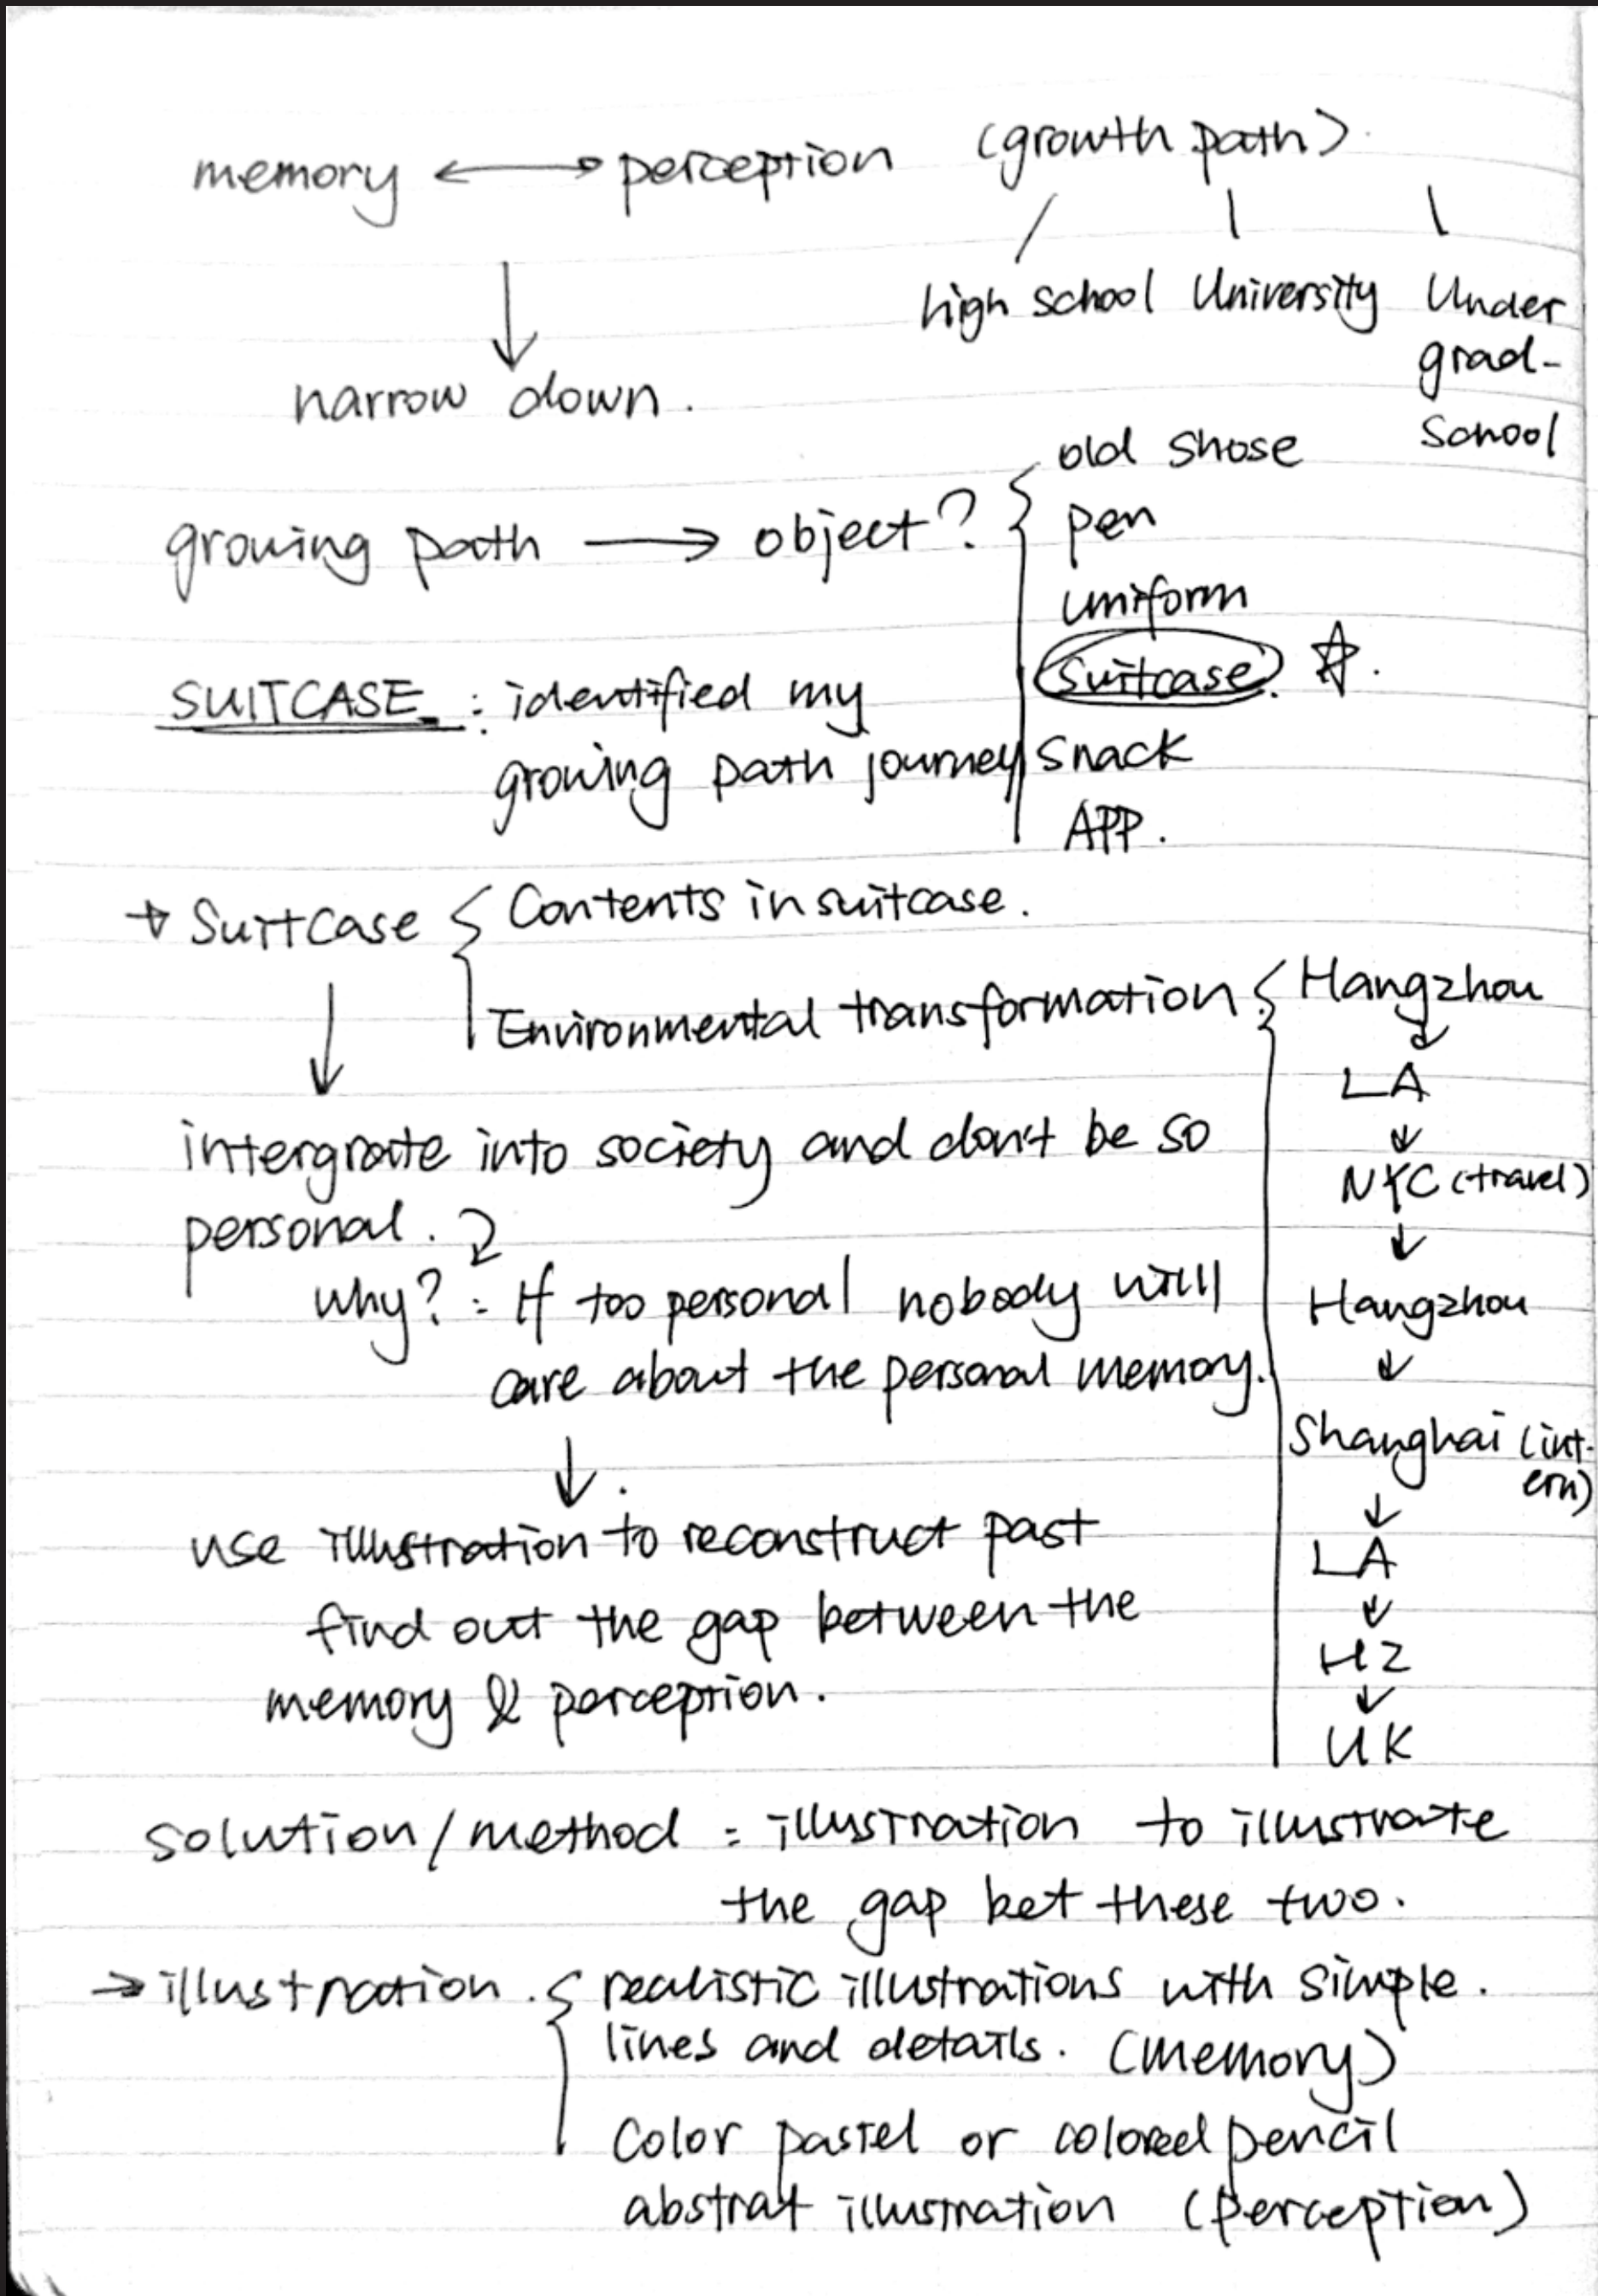 memory ⟷ perception (growth path)
high school University Under
grad-
School
narrow down.
growing path → object?
old shose
pen
uniform
suitcase. ☆.
snack
APP.
SUITCASE : identified my
growing path journey
→ Suitcase
Contents in suitcase.
Environmental transformation.
Hangzhou
↓
LA
↓
NYC (travel)
↓
Hangzhou
↓
Shanghai (int-
ern)
↓
LA
↓
HZ
↓
UK
intergrate into society and don't be so
personal.
why? : If too personal nobody will
care about the personal memory.
↓.
use illustration to reconstruct past
find out the gap between the
memory & perception.
solution/method : illustration to illustrate
the gap bet these two.
→ illustration.
realistic illustrations with simple.
lines and details. (memory)
Color pastel or colored pencil
abstrat illustration (perception)